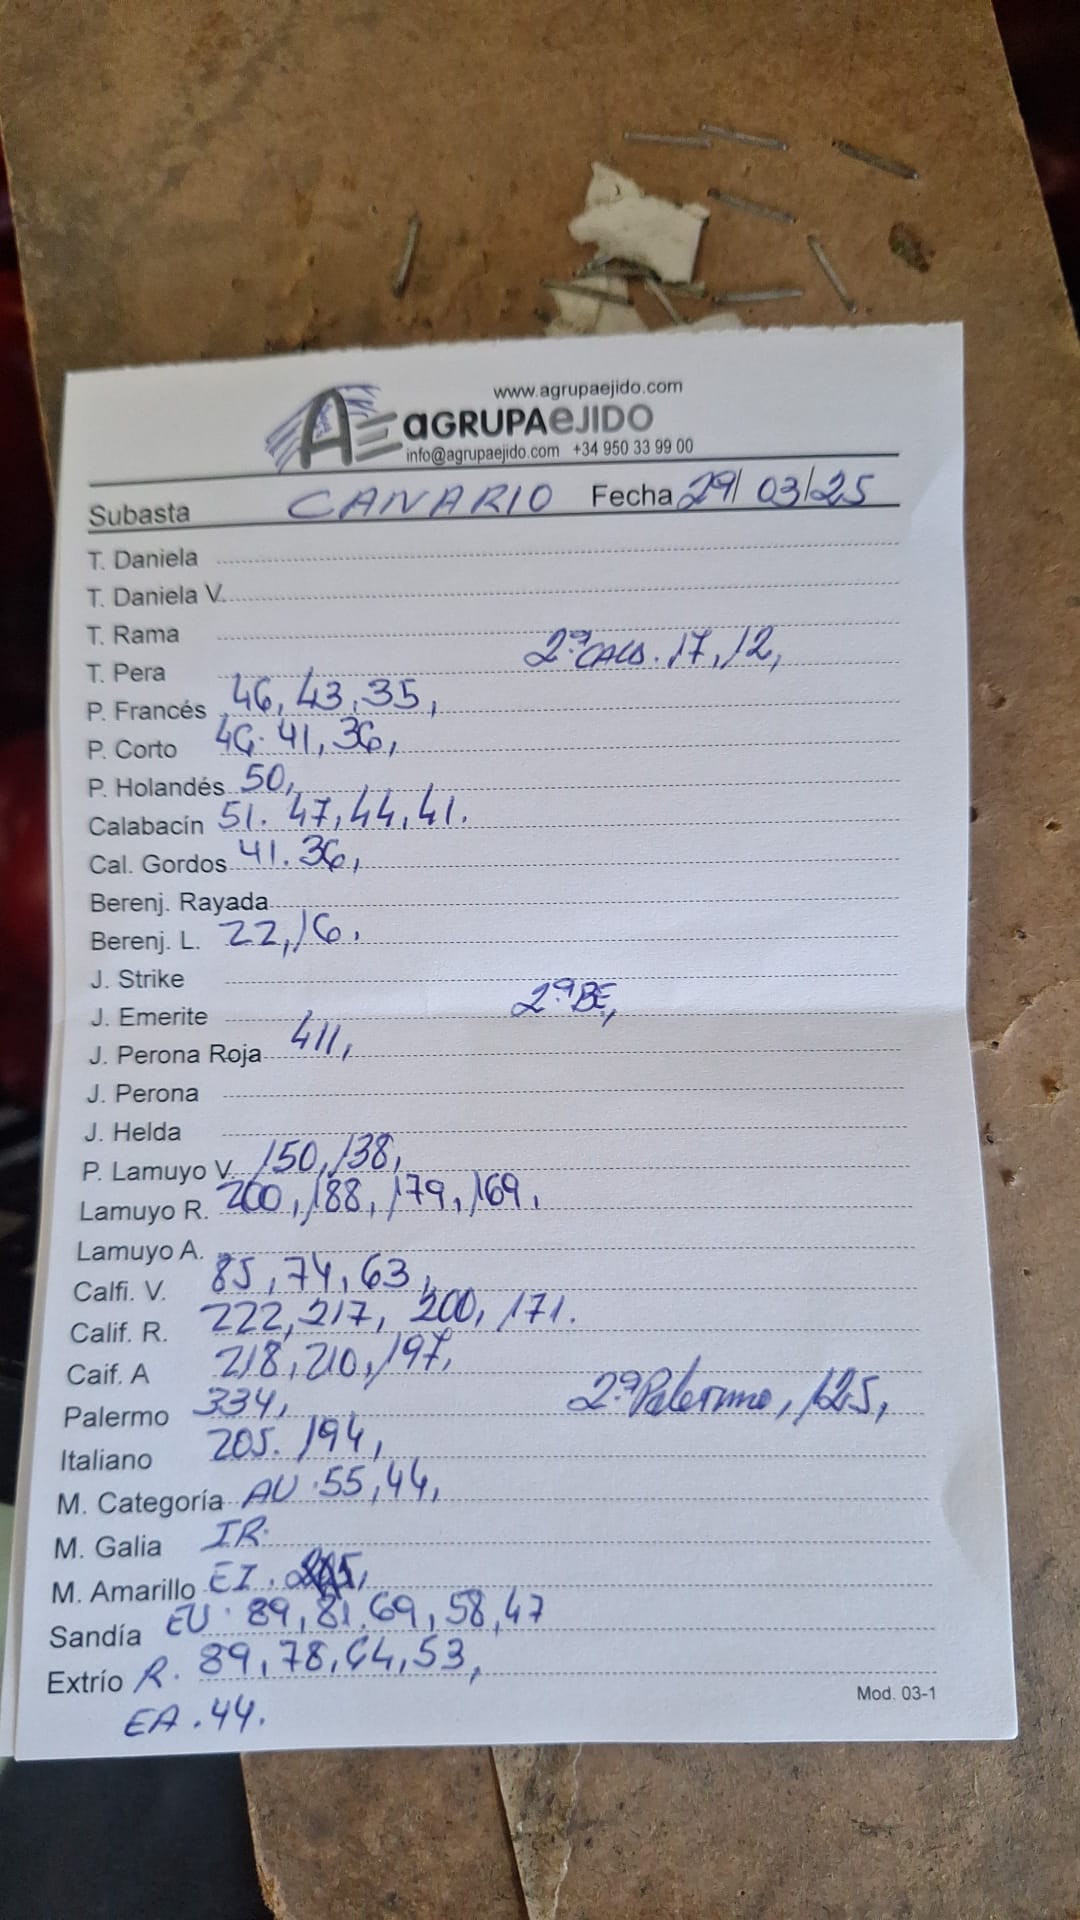 www.agrupaejido.com
AGRUPAEJIDO
info@agrupaejido.com +34 950 33 99 00
Subasta CANARIO Fecha 29/ 03/25
T. Daniela
T. Daniela V.
T. Rama
T. Pera 2ªCALB. 17, 12,
P. Francés 46, 43, 35,
P. Corto 46. 41, 36,
P. Holandés 50,
Calabacín 51. 47, 44, 41.
Cal. Gordos 41. 36,
Berenj. Rayada
Berenj. L. 22, 16.
J. Strike
J. Emerite 2ªBE,
J. Perona Roja 411,
J. Perona
J. Helda
P. Lamuyo V. 150, 138,
Lamuyo R. 200, 188, 179, 169,
Lamuyo A.
Calfi. V. 85, 74, 63,
Calif. R. 222, 217, 200, 171.
Caif. A 218, 210, 197,
Palermo 334, 2ªPalermo, 125,
Italiano 205. 194,
M. Categoría AU. 55, 44,
M. Galia IR.
M. Amarillo EI.
Sandía EU. 89, 81. 69, 58, 47
Extrío R. 89, 78, 64, 53,
EA. 44.
Mod. 03-1